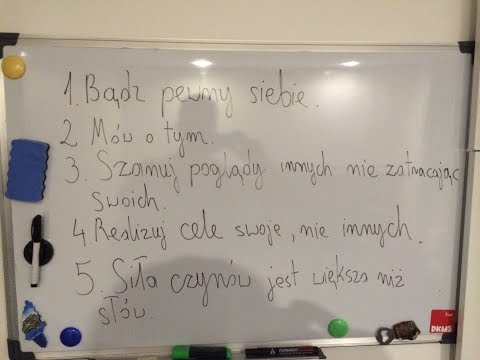 1. Bądz pewny siebie.
2 Mów o tym.
3. Szanuj poglądy innych nie zatracając
swoich.
4. Realizuj cele swoje, nie innych.
5. Siła czynów jest większa niż
słów.
DKMS